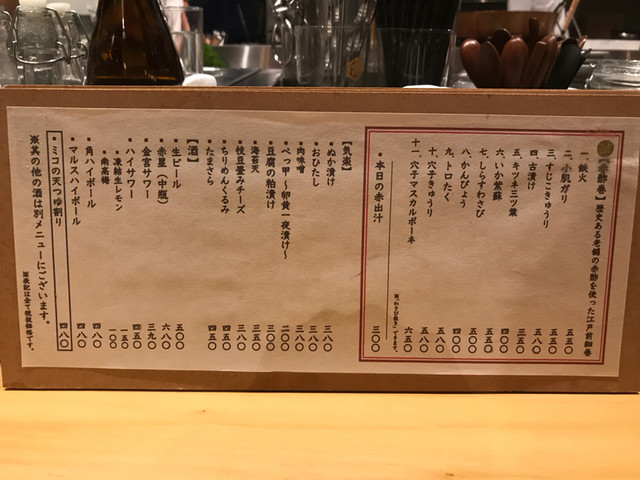 【赤酢巻】歴史ある老舗の赤酢を使った江戸前細巻
一、鉄火 五五〇
二、小肌ガリ 五五〇
三、すじこきゅうり 五八〇
四、古漬け 三五〇
五、キツネ三ツ葉 四八〇
六、いか紫蘇 五五〇
七、しらすわさび 五五〇
八、かんぴょう 四〇〇
九、トロたく 五八〇
十、穴子きゅうり 五八〇
十一、穴子マスカルポーネ 六五〇
※「わさび抜き」できます。
・本日の赤出汁 三〇〇
【気楽】
・ぬか漬け 三八〇
・おひたし 三八〇
・肉味噌 三八〇
・べっ甲〜卵黄一夜漬け〜 二〇〇
・豆腐の粕漬け 三〇〇
・海苔天 三五〇
・枝豆畳みチーズ 三八〇
・ちりめんくるみ 四五〇
・たまさら 四五〇
【酒】
・生ビール 五〇〇
・赤星（中瓶） 六八〇
・金宮サワー 三九〇
・ハイサワー 四五〇
・凍結生レモン 一五〇
・南高梅 一〇〇
・角ハイボール 四八〇
・マルスハイボール 四八〇
・ミコの天つゆ割り 四八〇
※其の他の酒は別メニューにございます。
※表記は全て税抜価格です。